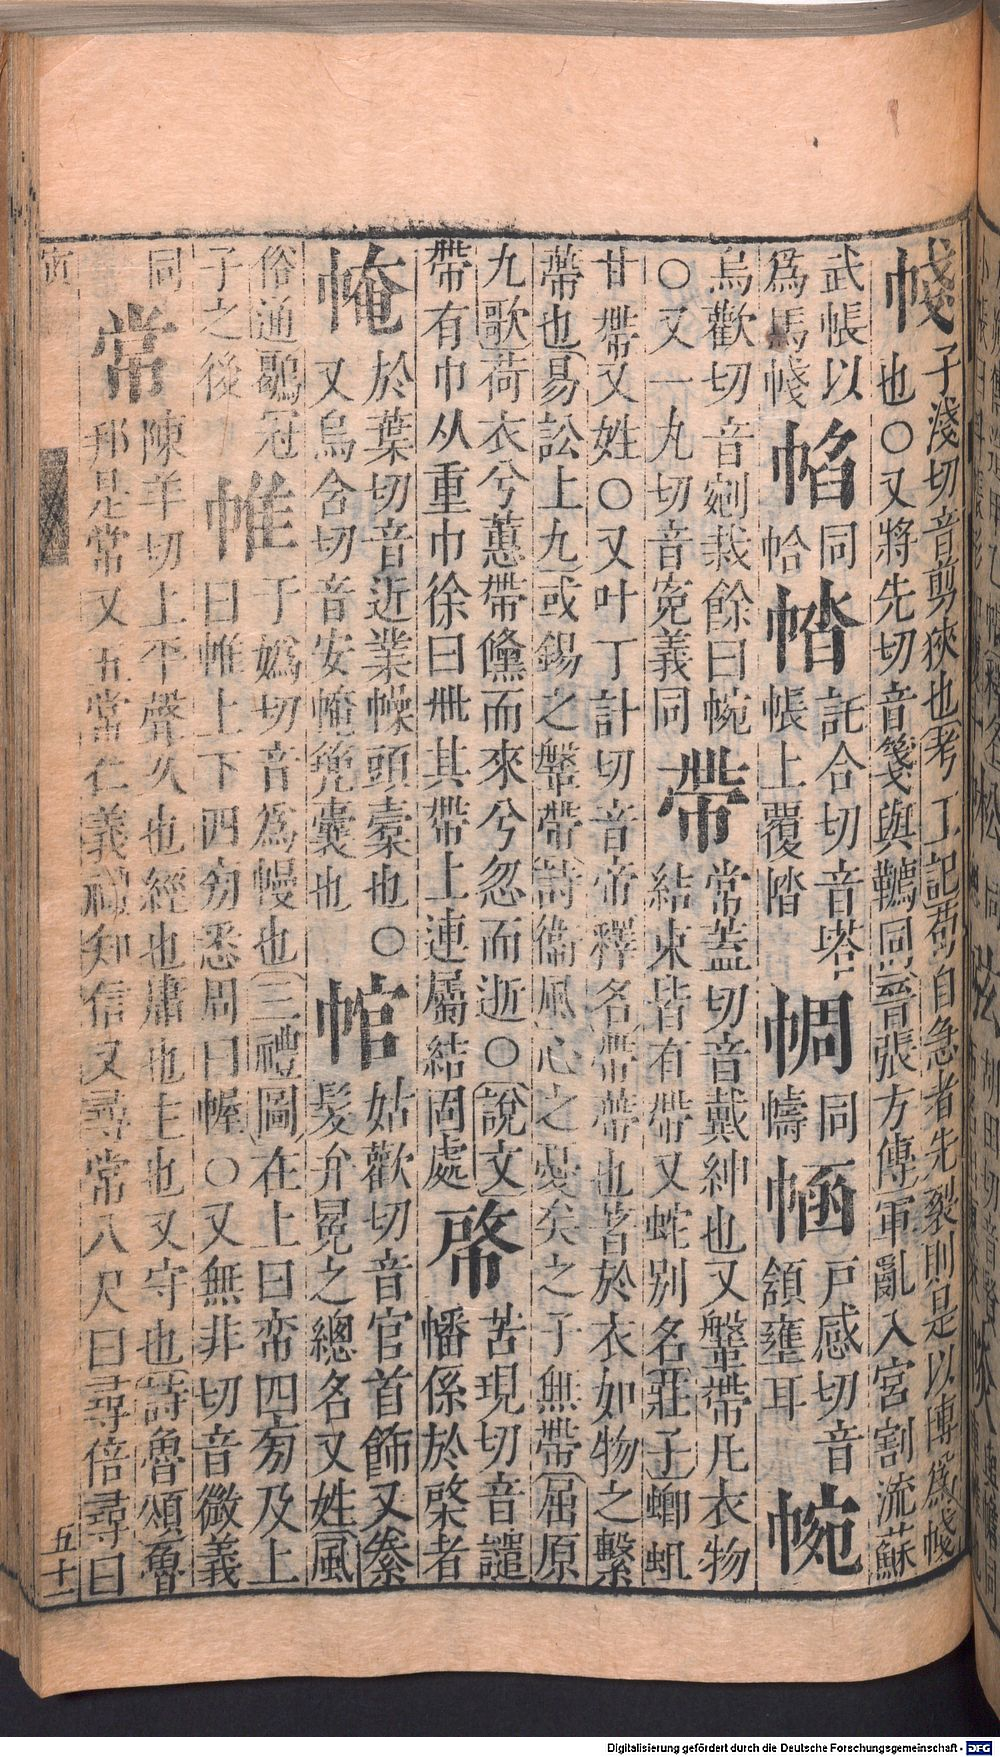 幭子淺切音剪狹也考工記帴自急者先裂則是以博爲帴
也○又將先切音箋與韉同晉張方傳軍亂入宮割流蘇
武帳以
爲馬帴
㡊同
帢
㡺託合切音塔
帳上覆㡺
㡞同
幬
𢃗戶感切音
頷壅耳
帵
烏歡切音剜裁餘曰帵
○又一九切音寃義同
帶當蓋切音戴紳也又鞶帶凡衣物
結束皆有帶又蛇别名莊子蝍蛆
甘帶又姓○又叶丁計切音帝釋名帶蔕也著於衣如物之繫
蔕也易訟上九或錫之鞶帶詩衞風心之憂矣之子無帶屈原
九歌荷衣兮蕙帶儵而來兮忽而逝○說文
帶有巾从重巾徐曰丗其帶上連屬結固處
𢂷苦現切音譴
幡係於棨者
㡋於葉切音近業幧頭囊也○
又烏含切音安㡋𠒎囊也
㡩姑歡切音官首飾又養
髮弁冕之總名又姓風
俗通鶡冠
子之後
帷于嬀切音爲幔也三禮圖在上曰帟四旁及上
曰帷上下四旁悉周曰幄○又無非切音微義
同
常陳羊切上平聲久也經也庸也主也又守也詩魯頌魯
邦是常又五常仁義禮知信又尋常八尺曰尋倍尋曰
寅
五十一
Digitalisierung gefördert durch die Deutsche Forschungsgemeinschaft - DFG